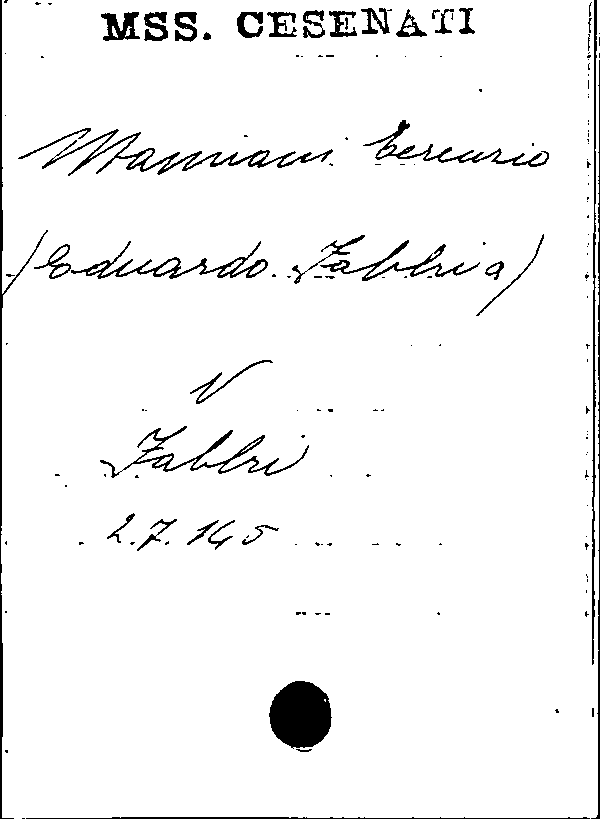 MSS. CESENATI
Mamiani Terenzio
(Eduardo Fabbri a)
V
Fabbri
2.7.145